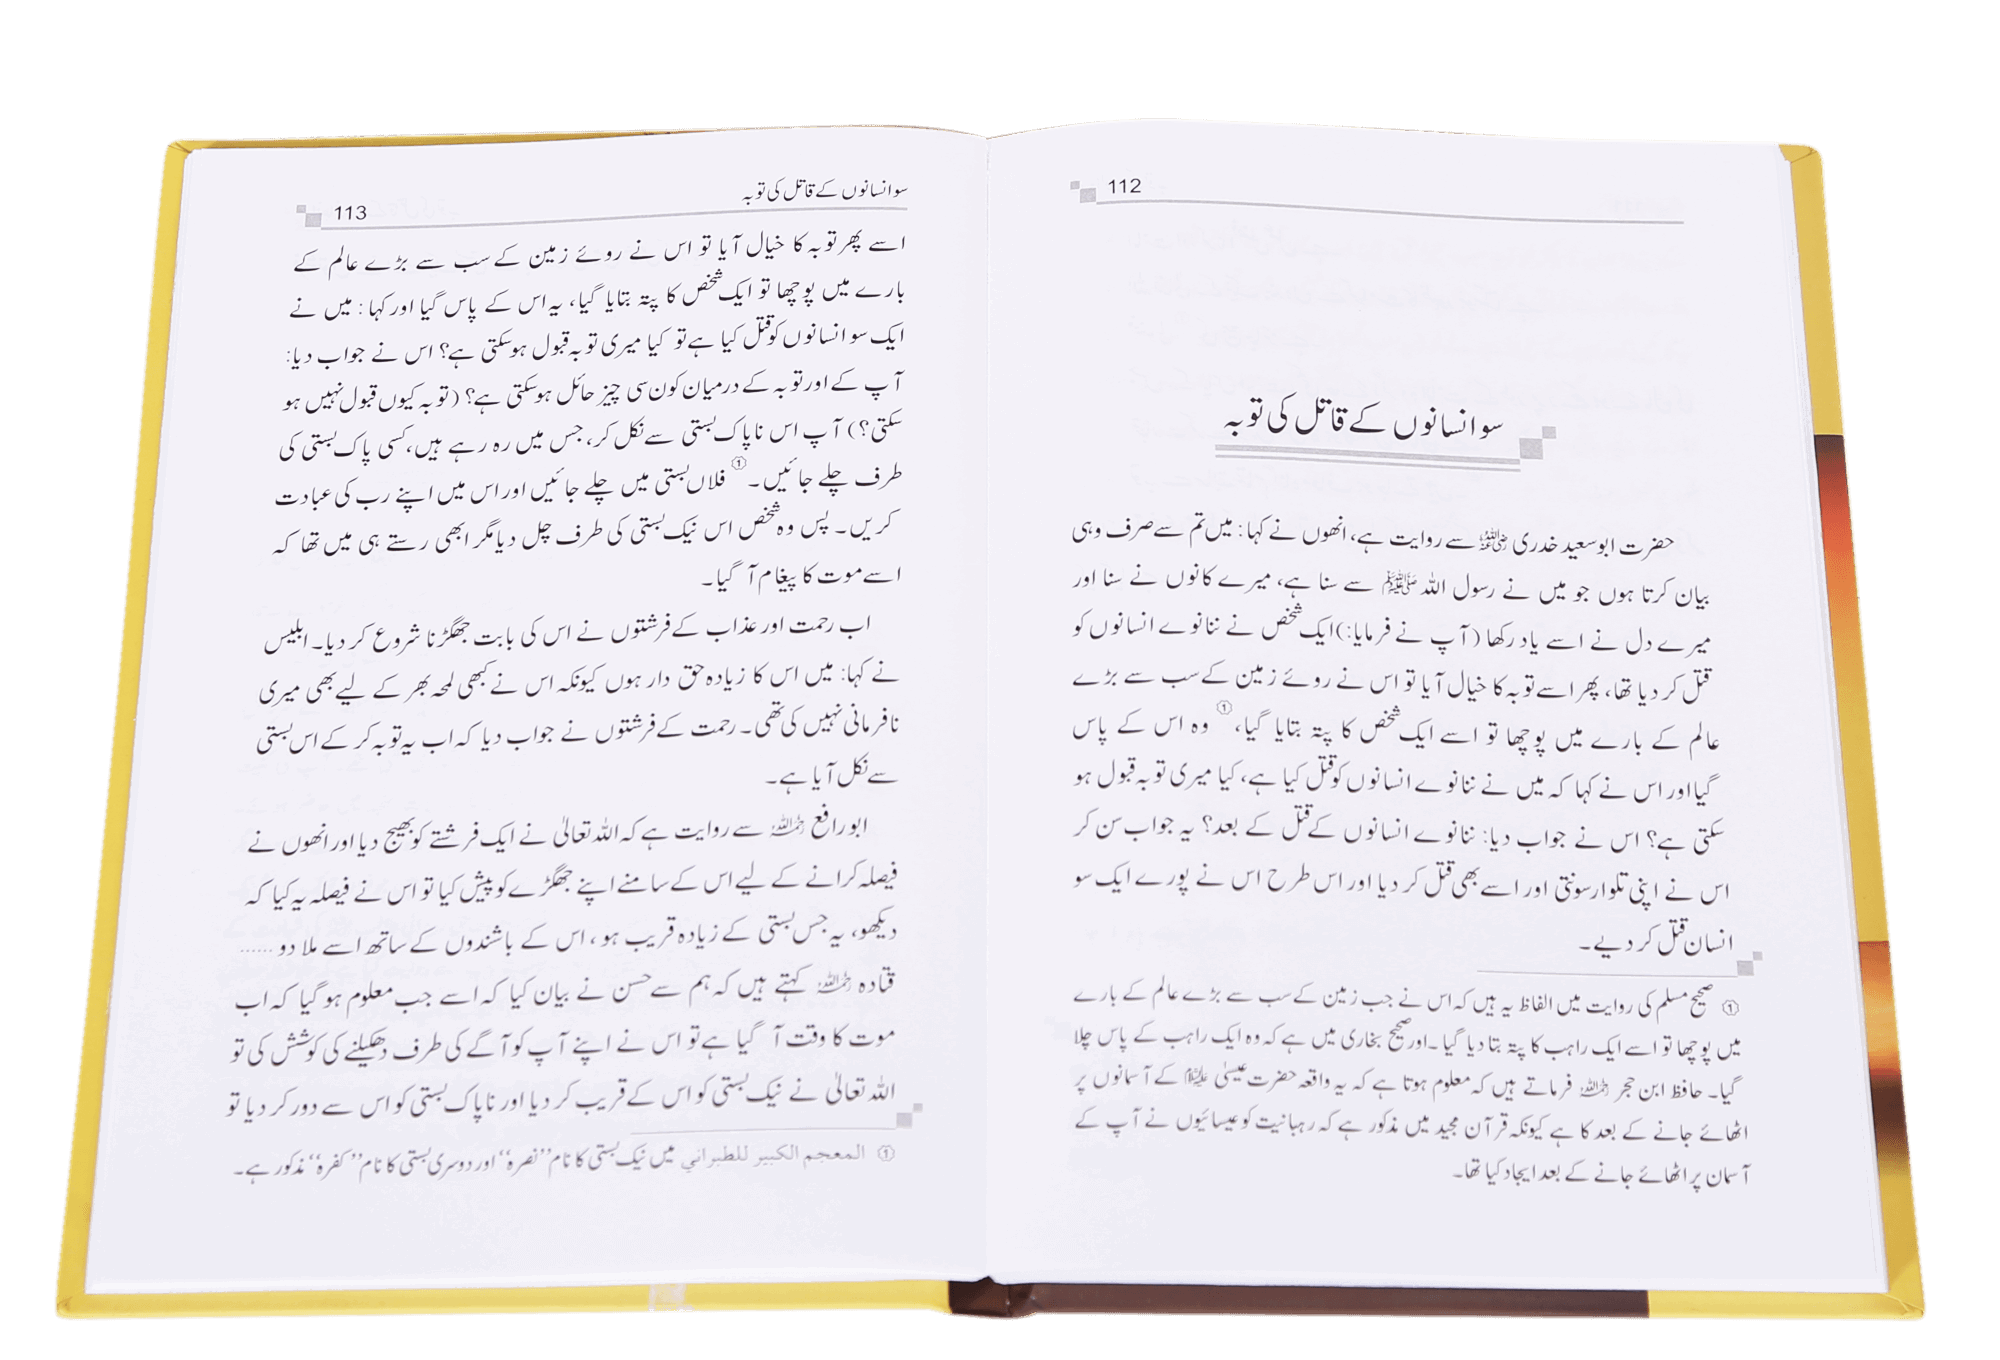 112
سو انسانوں کے قاتل کی توبہ
حضرت ابوسعید خدری رضی اللہ عنہ سے روایت ہے، انھوں نے کہا: میں تم سے صرف وہی
بیان کرتا ہوں جو میں نے رسول اللہ ﷺ سے سنا ہے، میرے کانوں نے سنا اور
میرے دل نے اسے یاد رکھا (آپ نے فرمایا:) ایک شخص نے ننانوے انسانوں کو
قتل کر دیا تھا، پھر اسے توبہ کا خیال آیا تو اس نے روئے زمین کے سب سے بڑے
عالم کے بارے میں پوچھا تو اسے ایک شخص کا پتہ بتایا گیا،① وہ اس کے پاس
گیا اور اس نے کہا کہ میں نے ننانوے انسانوں کو قتل کیا ہے، کیا میری توبہ قبول ہو
سکتی ہے؟ اس نے جواب دیا: ننانوے انسانوں کے قتل کے بعد؟ یہ جواب سن کر
اس نے اپنی تلوار سونتی اور اسے بھی قتل کر دیا اور اس طرح اس نے پورے ایک سو
انسان قتل کر دیے۔
① صحیح مسلم کی روایت میں الفاظ یہ ہیں کہ اس نے جب زمین کے سب سے بڑے عالم کے بارے
میں پوچھا تو اسے ایک راہب کا پتہ بتا دیا گیا۔ اور صحیح بخاری میں ہے کہ وہ ایک راہب کے پاس چلا
گیا۔ حافظ ابن حجر رحمہ اللہ فرماتے ہیں کہ معلوم ہوتا ہے کہ یہ واقعہ حضرت عیسیٰ علیہ السلام کے آسمانوں پر
اٹھائے جانے کے بعد کا ہے کیونکہ قرآن مجید میں مذکور ہے کہ رہبانیت کو عیسائیوں نے آپ کے
آسمان پر اٹھائے جانے کے بعد ایجاد کیا تھا۔
سو انسانوں کے قاتل کی توبہ
113
اسے پھر توبہ کا خیال آیا تو اس نے روئے زمین کے سب سے بڑے عالم کے
بارے میں پوچھا تو ایک شخص کا پتہ بتایا گیا، یہ اس کے پاس گیا اور کہا: میں نے
ایک سو انسانوں کو قتل کیا ہے تو کیا میری توبہ قبول ہو سکتی ہے؟ اس نے جواب دیا:
آپ کے اور توبہ کے درمیان کون سی چیز حائل ہو سکتی ہے؟ (توبہ کیوں قبول نہیں ہو
سکتی؟) آپ اس ناپاک بستی سے نکل کر، جس میں رہ رہے ہیں، کسی پاک بستی کی
طرف چلے جائیں۔① فلاں بستی میں چلے جائیں اور اس میں اپنے رب کی عبادت
کریں۔ پس وہ شخص اس نیک بستی کی طرف چل دیا مگر ابھی رستے ہی میں تھا کہ
اسے موت کا پیغام آ گیا۔
اب رحمت اور عذاب کے فرشتوں نے اس کی بابت جھگڑنا شروع کر دیا۔ ابلیس
نے کہا: میں اس کا زیادہ حق دار ہوں کیونکہ اس نے کبھی لمحہ بھر کے لیے بھی میری
نافرمانی نہیں کی تھی۔ رحمت کے فرشتوں نے جواب دیا کہ اب یہ توبہ کر کے اس بستی
سے نکل آیا ہے۔
ابو رافع رحمہ اللہ سے روایت ہے کہ اللہ تعالیٰ نے ایک فرشتے کو بھیج دیا اور انھوں نے
فیصلہ کرانے کے لیے اس کے سامنے اپنے جھگڑے کو پیش کیا تو اس نے فیصلہ یہ کیا کہ
دیکھو، یہ جس بستی کے زیادہ قریب ہو، اس کے باشندوں کے ساتھ اسے ملا دو ......
قتادہ رحمہ اللہ کہتے ہیں کہ ہم سے حسن نے بیان کیا کہ اسے جب معلوم ہو گیا کہ اب
موت کا وقت آ گیا ہے تو اس نے اپنے آپ کو آگے کی طرف دھکیلنے کی کوشش کی تو
اللہ تعالیٰ نے نیک بستی کو اس کے قریب کر دیا اور ناپاک بستی کو اس سے دور کر دیا تو
① المعجم الكبير للطبراني میں نیک بستی کا نام ’’نصرہ‘‘ اور دوسری بستی کا نام ’’کفرہ‘‘ مذکور ہے۔